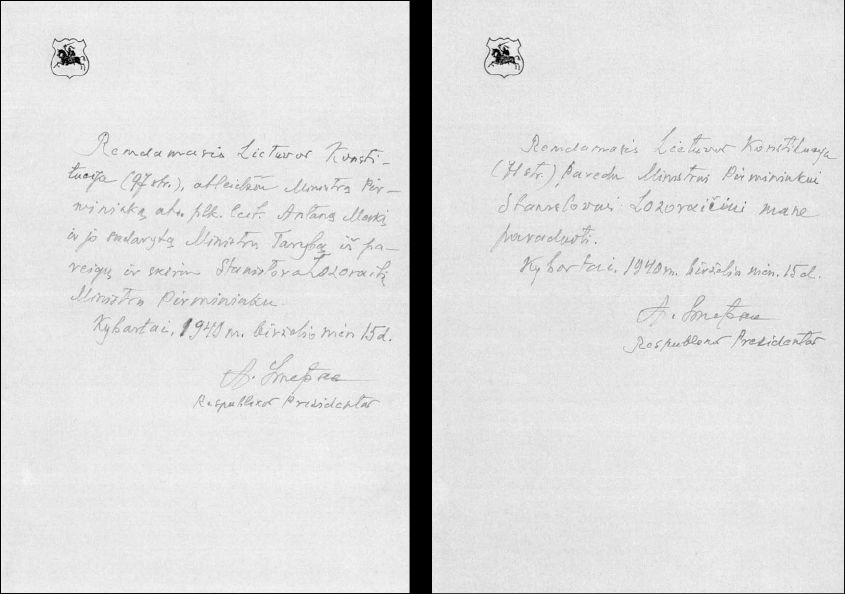 Remdamasis Lietuvos Konsti-
tucija (97 str.), atleidžiu Ministrą Pir-
mininką ats. plk. leit. Antaną Merkį
ir jo sudarytą Ministrų Tarybą iš pa-
reigų ir skiriu Stasį Lozoraitį
Ministru Pirmininku.
Kybartai, 1940 m. birželio mėn. 15 d.
A. Smetona
Respublikos Prezidentas
Remdamasis Lietuvos Konstitucija
(71 str.), pavedu Ministrui Pirmininkui
Lozoraičiui mane
pavaduoti.
Kybartai, 1940 m. birželio mėn. 15 d.
A. Smetona
Respublikos Prezidentas